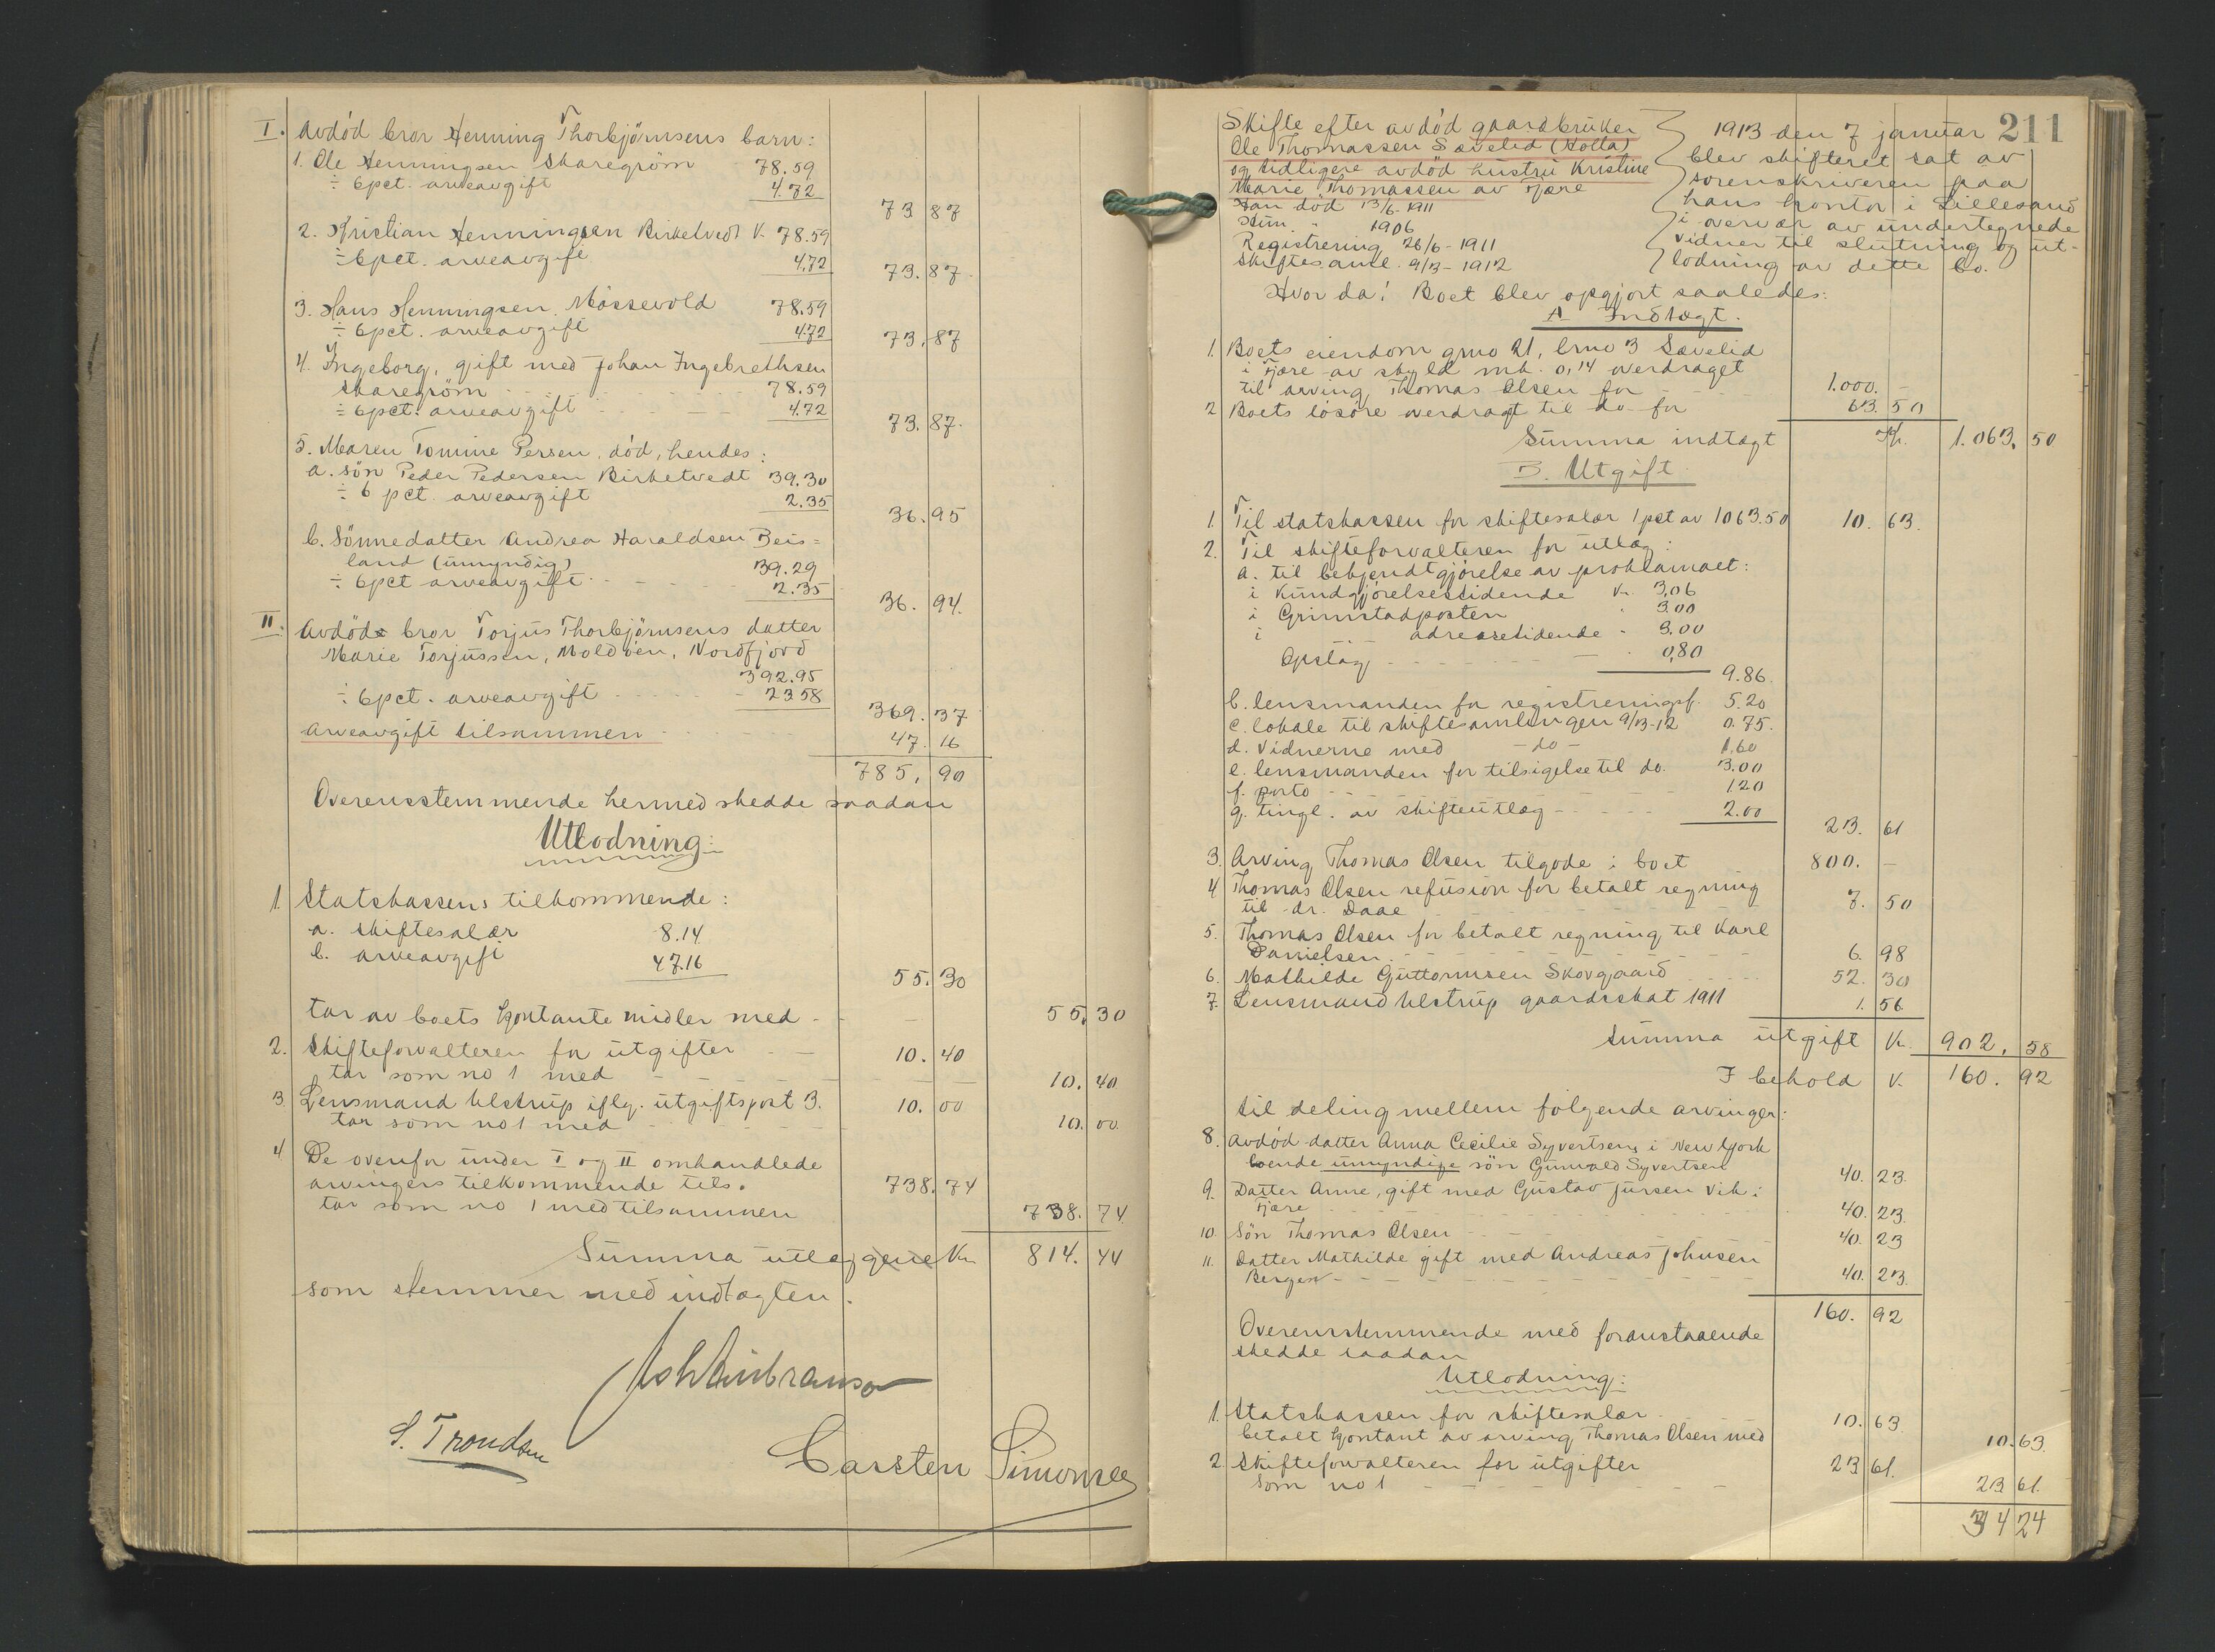 I. Avdöd bror Henning Thorbjörnsens barn:
1. Ole Henningsen Skaregröm 78.59
÷ 6pct. arveavgift 4.72
73 87
2. Kristian Henningsen Birketvedt K. 78.59
÷ 6pct. arveavgift 4.72
73. 87
3. Hans Henningsen, Mossevold 78.59
÷ 6pct. arveavgift 4.72
73. 87
4. Ingeborg, gift med Johan Ingebrethsen
Skaregröm 78.59
÷ 6pct. arveavgift 4.72
73. 87.
5. Maren Tomine Persen, död, hendes:
a. sön Peder Pedersen Birketvedt 39.30
÷ 6 pct. arveavgift 2.35
36. 95
b. Sönnedatter Andrea Haraldsen Beis=
land (umyndig) 39.29
÷ 6pct arveavgift 2.35
36. 94.
II. Avdöd bror Torjus Thorbjörnsens datter
Marie Torjussen, Moldöen, Nordfjord
392.95
÷ 6pct. arveavgift 23.58
369. 37
Arveavgift tilsammen 47. 16
785. 90
Overensstemmende hermed skedde saadan
Utlodning:
1. Statskassens tilkommende:
a. skiftesalær 8.14
b. arveavgift 47.16
55. 30
tar av boets kontante midler med - 55. 30
2. Skifteforvalteren for utgifter 10. 40
tar som no 1 med 10. 40
3. Lensmand Ulstrup iflg. utgiftspost 3. 10. 00
tar som no 1 med 10. 00.
4 De ovenfor under I og II omhandlede
arvingers tilkommende tils. 738. 74
tar som no 1 med tilsammen 738. 74
Summa utlæggene Kr 814. 44
som stemmer med indtægten.
S. Trondsen
Carsten Simonsen
211
Skifte efter avdöd gaardbruker
Ole Thomassen Sævelid (Holta)
og tidligere avdöd hustru Kristine
Marie Thomassen av Fjære
Han död 13/6 - 1911
Hun " 1906
Registrering 26/6 - 1911
Skiftesaml. 9/3 - 1912
1913 den 7 januar
blev skifteret sat av
sorenskriveren paa
hans kontor i Lillesand
i overvær av undertegnede
vidner til slutning og ut-
lodning av dette bo.
Hvor da: Boet blev opgjort saaledes:
A Indtægt.
1. Boets eiendom gno 21, bno 3 Sævelid
i Fjære av skyld mk. 0,14 overdraget
til arving Thomas Olsen for 1.000. -
2 Boets lösöre overdragt til do for 63. 50
Summa indtægt Kr. 1.063. 50
B. Utgift
1. Til statskassen for skiftesalær 1 pct av 1063.50 10. 63.
2. Til skifteforvalteren for utlæg:
a. til bekjendtgjörelse av proklamaet:
i Kundgjörelsestidende Kr. 3,06
i Grimstadposten " 3.00
i adressetidende " 3.00
Opslag 0,80
9.86.
b. lensmanden for registreringsf. 5.20
c. lokale til skiftesamlingen 9/3-12 0.75.
d. vidnerne med - do - 1.60
e. lensmanden for tilsigelse til do. 3.00
f. porto 1.20
g. tingl. av skifteutlæg 2.00
23. 61
3. Arving Thomas Olsen tilgode i boet 800. -
4 Thomas Olsen refusion for betalt regning
til dr. Daae 7. 50
5. Thomas Olsen for betalt regning til Karl
Danielsen 6. 98
6. Mathilde Guttormsen Skovgaard 52. 30
7. Lensmand Ulstrup gaardsskat 1911 1. 56
Summa utgift Kr. 902. 58
I behold K. 160. 92
til deling mellem folgende arvinger:
8. Avdöd datter Anna Cecilie Syvertsens i New York
boende umyndige sön Gunvald Syvertsen 40. 23.
9. Datter Anne, gift med Gustav Jursen Vik i
Fjære 40. 23.
10. Sön Thomas Olsen 40. 23
11. Datter Mathilde gift med Andreas Johnsen
Bergen 40. 23.
160. 92
Overensstemmende med foranstaaende
skedde saadan
Utlodning:
1. Statskassen for skiftesalær 10. 63
betalt kontant av arving Thomas Olsen med 10. 63.
2 Skifteforvalteren for utgifter 23 61.
som no 1 23 61.
34 24